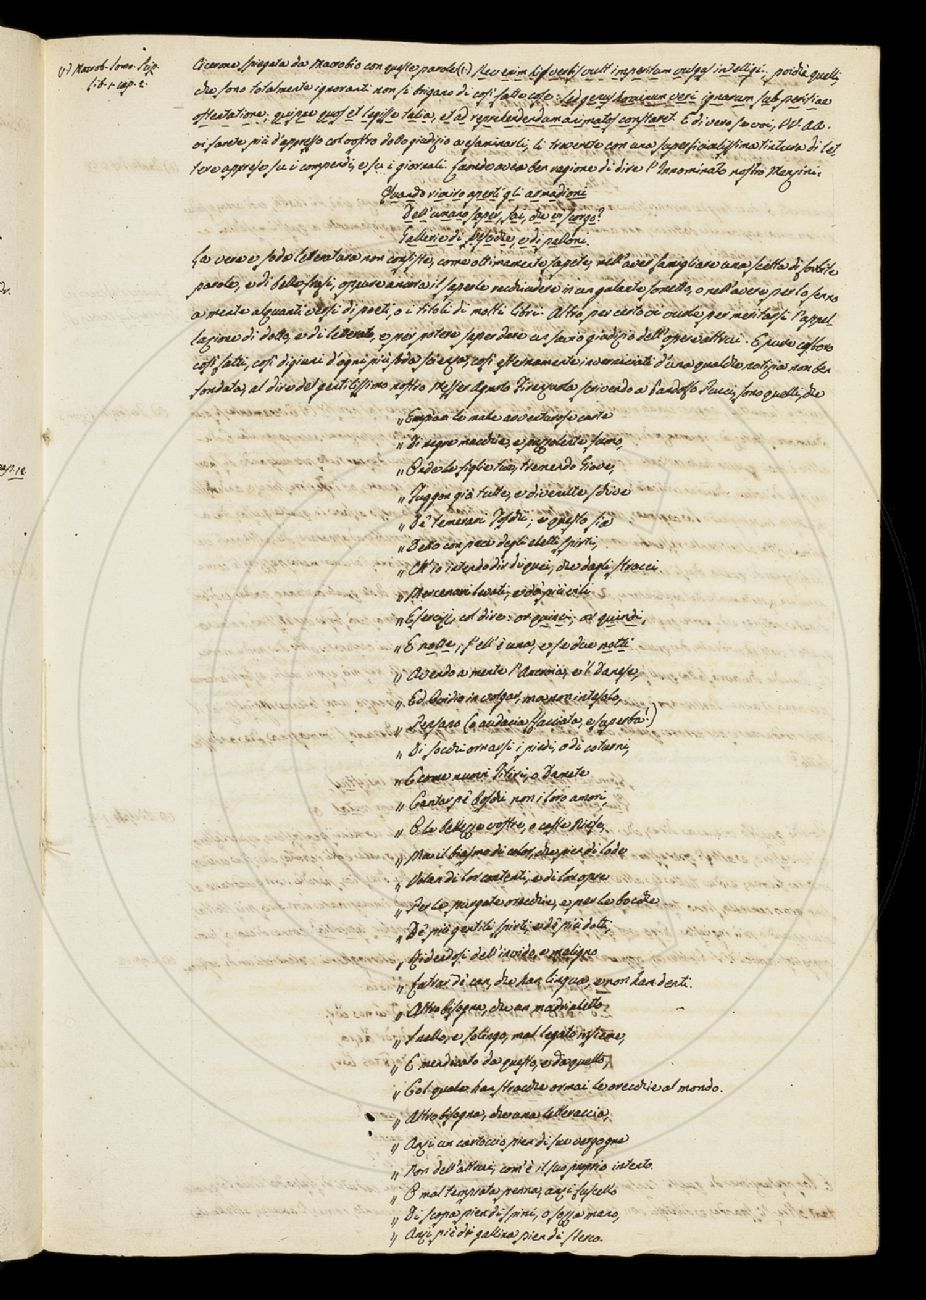 (1) Macrob. Somn. Scip.
lib. 1. cap. 2.
Cicerone spiegata da Macrobio con queste parole (1) Nec enim his verbis vult imperitam vulgus intelligi. poichè quelli,
che sono totalmente ignoranti non si brigano di così fatte cose: sed genus hominum veri ignarum sub peritiae
ostentatione, quippe quos et legisse talia, et ad reprehendendum animatos constaret. E di vero se voi, VV. AA.
vi farete più d'appresso col vostro dotto giudizio a esaminarli, li troverete con una superficialissima tintura di let
tere appresa su i compendj, e su i giornali. Laonde avea ben ragione di dire l'Innominato nostro Menzini.
Quando rimiro aperti gli armadioni
Dell'umano saper, sai, che io scorgo?
Gallerie di vesciche, e di palloni.
La vera e soda letteratura non consiste, come ottimamente sapete, nell'aver famigliare una scelta di forbite
parole, e di belle frasi, oppure ancora il saperle racchiudere in un galante sonetto, o nell'avere per lo senno
a mente alquanti versi di poeti, o i titoli di molti libri. Altro per certo ci vuole per meritarsi l'appel
lazione di dotto, e di letterato, e per potere saper dare un sano giudizio dell'opere altrui. E pure costoro
così fatti, così digiuni d'ogni più soda scienza, così esternamente inverniciati d'una qualche notizia non ben
fondata, al dire del gentilissimo nostro Messer Agnolo Firenzuola scrivendo a Pandolfo Pucci, sono quelli, che
„ Empion le male avventurose carte
„ Di negre macchie, e puzzolente fumo,
„ Onde le figlie tue, tremendo Giove,
„ Fuggon già tutte, e divenute schive
„ De' temerarj Toschi; e questo sia
„ Detto con pace degli eletti spirti,
„ Ch'io intendo dir di quei, che dagli stracci
„ Mercenarj levati, e da' più vili
„ Esercizj, col dire: or quinci, or quindi,
„ E notte, s'ell'è una, e se due notti
„ Avendo a mente l'Ancroia, e'l Danese,
„ Ed Ovidio in volgar, ma non inteso,
„ Pensano (o audacia sfacciata, e superba!)
„ Di socchi ornarsi i piedi, o di coturni,
„ E come nuovi Titiri, o Dameta
„ Cantar pe' boschi non i loro amori,
„ E le bellezze vostre, o caste Ninfe,
„ Ma il biasmo di color, che pien di lode
„ Volan di lor contenti, e di lor opre
„ Per le purgate orecchie, e per le bocche
„ De' più gentili spirti, e de' più dotti,
„ Ridendosi dell'invido, e maligno
„ Latrar di can, che han lingua, e non han denti.
„ Altro bisogna, che un madrialetto
„ Snello, e solingo, mal legato insieme,
„ E mendicato da questo, e da quello,
„ Col quale han stracche ormai le orecchie al mondo.
„ Altro bisogna, che una letteraccia,
„ Anzi un cartoccio pien di sue vergogne
„ Non dell'altrui, com'è il suo proprio intento.
„ E mal temprata penna, anzi fuscello
„ Di scopa pien di spini, o sozza mano,
„ Anzi piè di gallina pien di sterco.